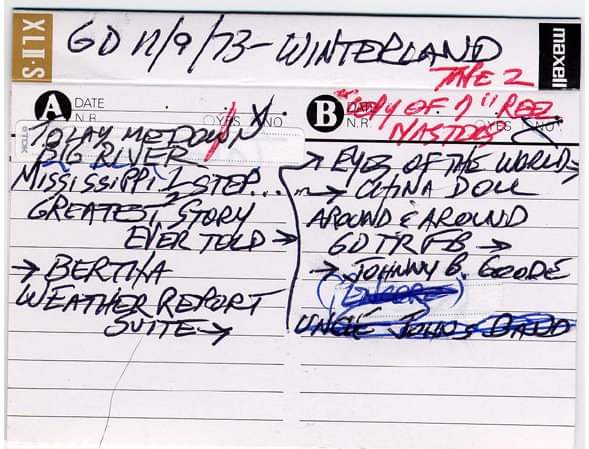 XLII·S
GD 11/9/73 - WINTERLAND
maxell
TAPE 2
A DATE
N.R. YES NO
TO LAY ME DOWN
BIG RIVER
MISSISSIPPI ½ STEP...
GREATEST STORY
EVER TOLD →
→ BERTHA
WEATHER REPORT
SUITE →
B DATE
N.R. YES NO
"COPY OF 7" REEL
MASTERS
→ EYES OF THE WORLD →
→ CHINA DOLL
AROUND & AROUND
GDTRFB →
→ JOHNNY B. GOODE
(ENCORE)
UNCLE JOHNS BAND
TDK